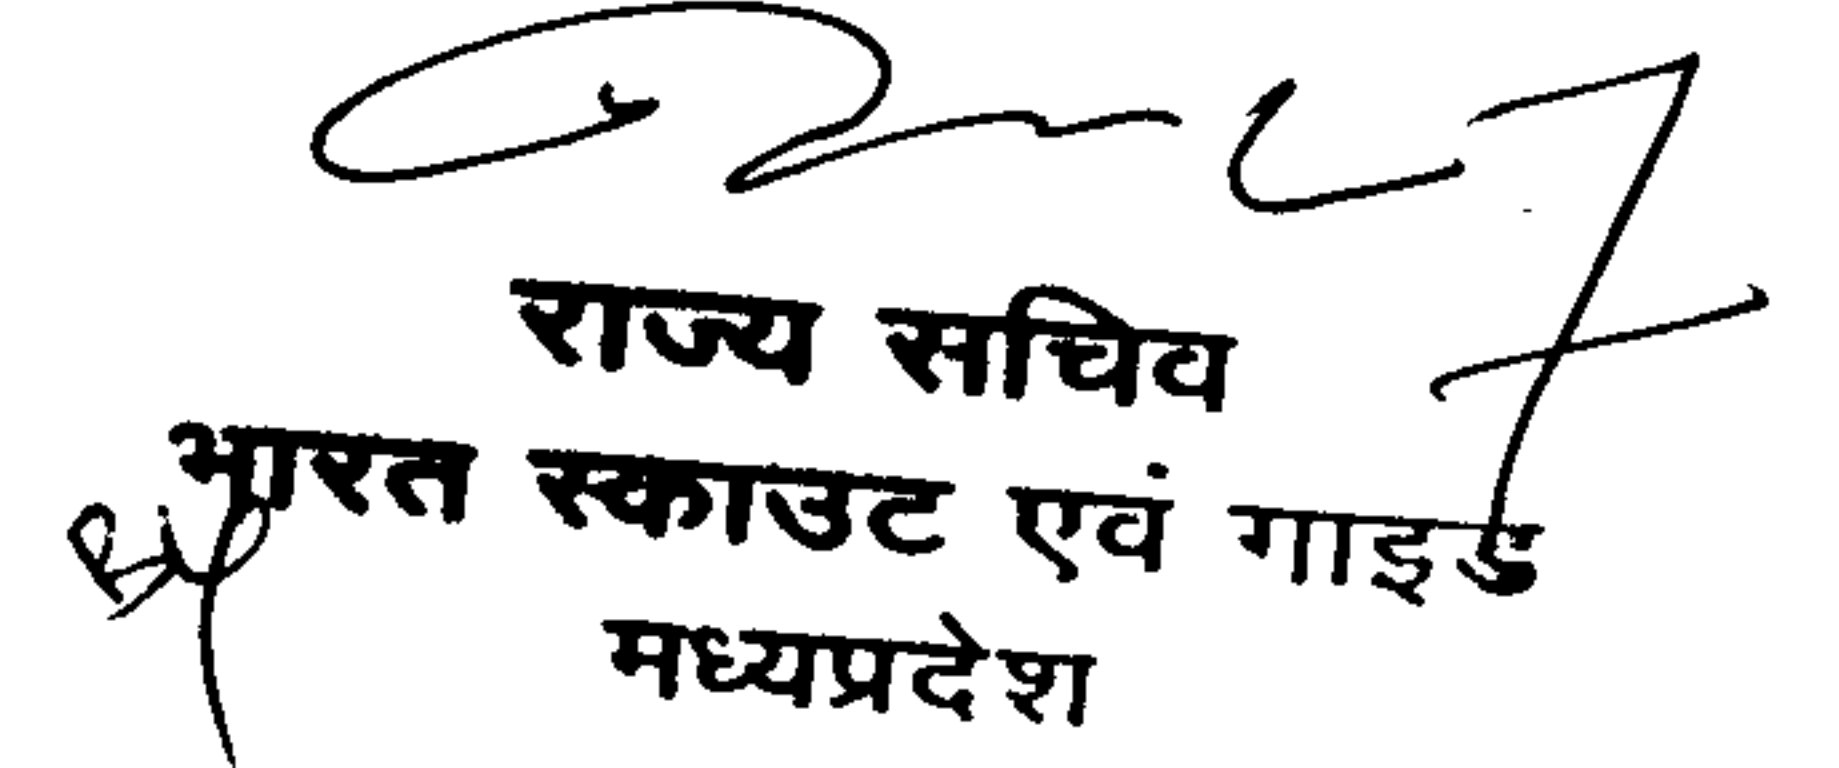 राज्य सचिव
भारत स्काउट एवं गाइड
मध्यप्रदेश